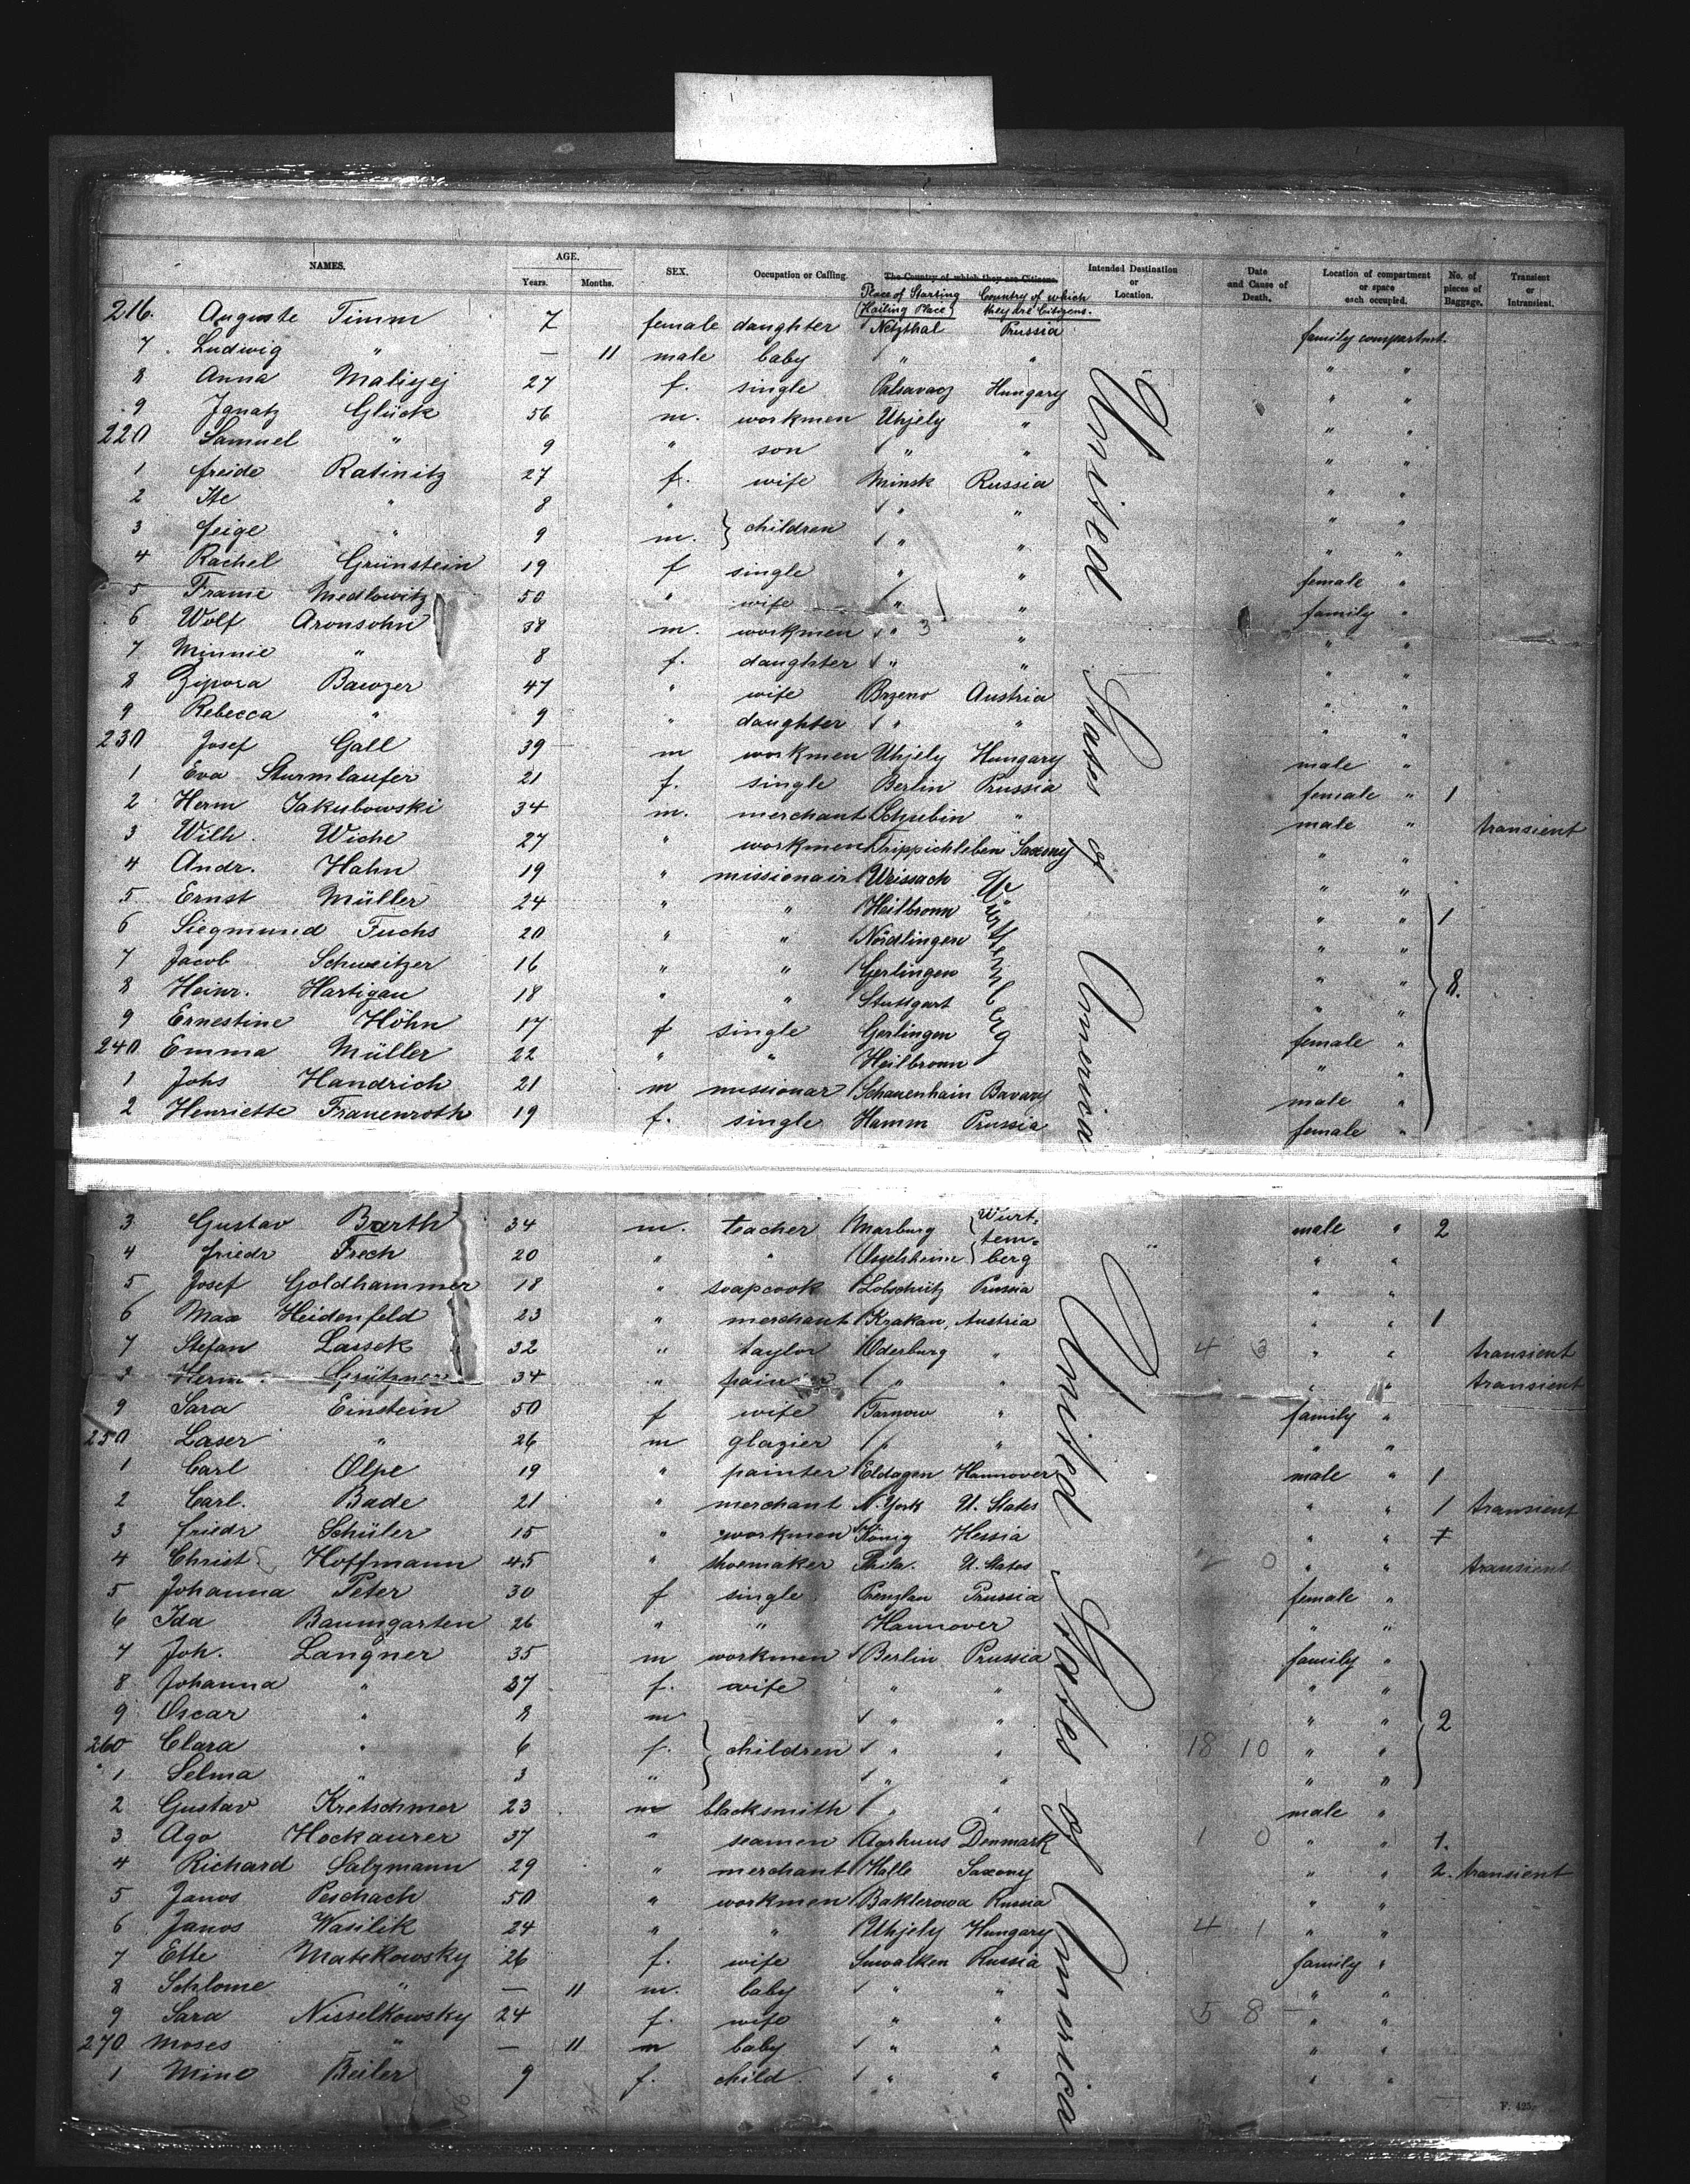 NAMES. AGE. SEX. Occupation or Calling. The Country of which they are Citizens. Intended Destination or Location. Date and Cause of Death. Location of compartment or space each occupied. No. of pieces of Baggage. Transient or Intransient.
Years. Months. Place of Starting (Hailing Place) Country of which they are Citizens.
216. Auguste Timm 7 female daughter Netzthal Prussia family compartmt.
7. Ludwig " — 11 male baby " " " "
8 Anna Maliyej 27 f. single Palsavacz Hungary " "
9 Ignatz Glück 56 m. workmen Uhjely " " "
220 Samuel " 9 " son " " " "
1 freide Ratinitz 27 f. wife Minsk Russia " "
2 Ite " 8 " } children " " " "
3 feige " 9 m. " " " "
4 Rachel Grünstein 19 f single " " female "
5 Framie Medlowitz 50 " wife " " family "
6 Wolf Aronsohn 38 m. workmen " 3 " " "
7 Minnie " 8 f. daughter " " " "
8 Zipora Bawzer 47 " wife Brzeno Austria " "
9 Rebecca " 9 " daughter " " " "
230 Josef Gall 39 m workmen Uhjely Hungary male "
1 Eva Sturmlaufer 21 f. single Berlin Prussia female " 1
2 Herm Jakubowski 34 m. merchant Schubin " male " transient
3 Wilh. Wiche 27 " workmen Trippichleben Saxony " "
4 Andr. Hahn 19 " missionair Urissach Württemberg " "
5 Ernst Müller 24 " " Heilbronn " " 1
6 Siegmund Fuchs 20 " " Nördlingen " "
7 Jacob Schweitzer 16 " " Gerlingen " "
8 Heinr. Hartigau 18 " " Stuttgart " " 8.
9 Ernestine Höhn 17 f single Gerlingen female "
240 Emma Müller 22 " " Heilbronn " "
1 Johs Handrich 21 m missionar Schauenhain Bavary male "
2 Henriette Frauenroth 19 f. single Hamm Prussia female "
United States of America
3 Gustav Barth 34 m. teacher Marburg { Würt- tem- berg male " 2
4 friedr Frech 20 " " Usselsheim " "
5 Josef Goldhammer 18 " soapcook Lobschütz Prussia " "
6 Max Heidenfeld 23 " merchant Krakau, Austria " " 1
7 Stefan Lassek 32 " taylor Oderburg " 4 3 " " transient
8 Herm. Grützner 34 " " " " " transient
9 Sara Einstein 50 f wife Tarnow " family "
250 Laser " 26 m glazier " " " "
1 Carl Olpe 19 " painter Eldagen Hannover male " 1
2 Carl. Bade 21 " merchant N. York U. States " " 1 transient
3 friedr Schüler 15 " workmen König Hessia " "
4 Christ Hoffmann 45 " shoemaker Phila. U. States 0 " " transient
5 Johanna Peter 30 f single Prenzlau Prussia female "
6 Ida Baumgarten 26 " " Hannover " "
7 Joh. Langner 35 m workmen Berlin Prussia family "
8 Johanna " 37 f. wife " " " "
9 Oscar " 8 m " " " " 2
260 Clara " 6 f. } children " " 18 10 " "
1 Selma " 3 " " " " "
2 Gustav Kretschmer 23 m blacksmith " " male "
3 Ago Hockaurer 37 " seamen Aarhuus Denmark 1 0 " " 1.
4 Richard Salzmann 29 " merchant Halle Saxony " " 2. transient
5 Janos Peschach 50 " workmen Baklerowa Russia " "
6 Janos Wasilik 24 " " Uhjely Hungary 4 1 " "
7 Ette Matekowsky 26 f. wife Suwalken Russia family "
8 Schlome " — 11 m. baby " " " "
9 Sara Nisselkowsky 24 f. wife " " 5 8 — " "
270 Moses " — 11 m baby " " " "
1 Mine Beiler 9 f. child. " " " "
United States of America
F. 425.